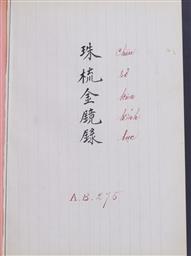 珠 Châu
梳 sơ
金 kim
鏡 kính
錄 lục
A.B.275